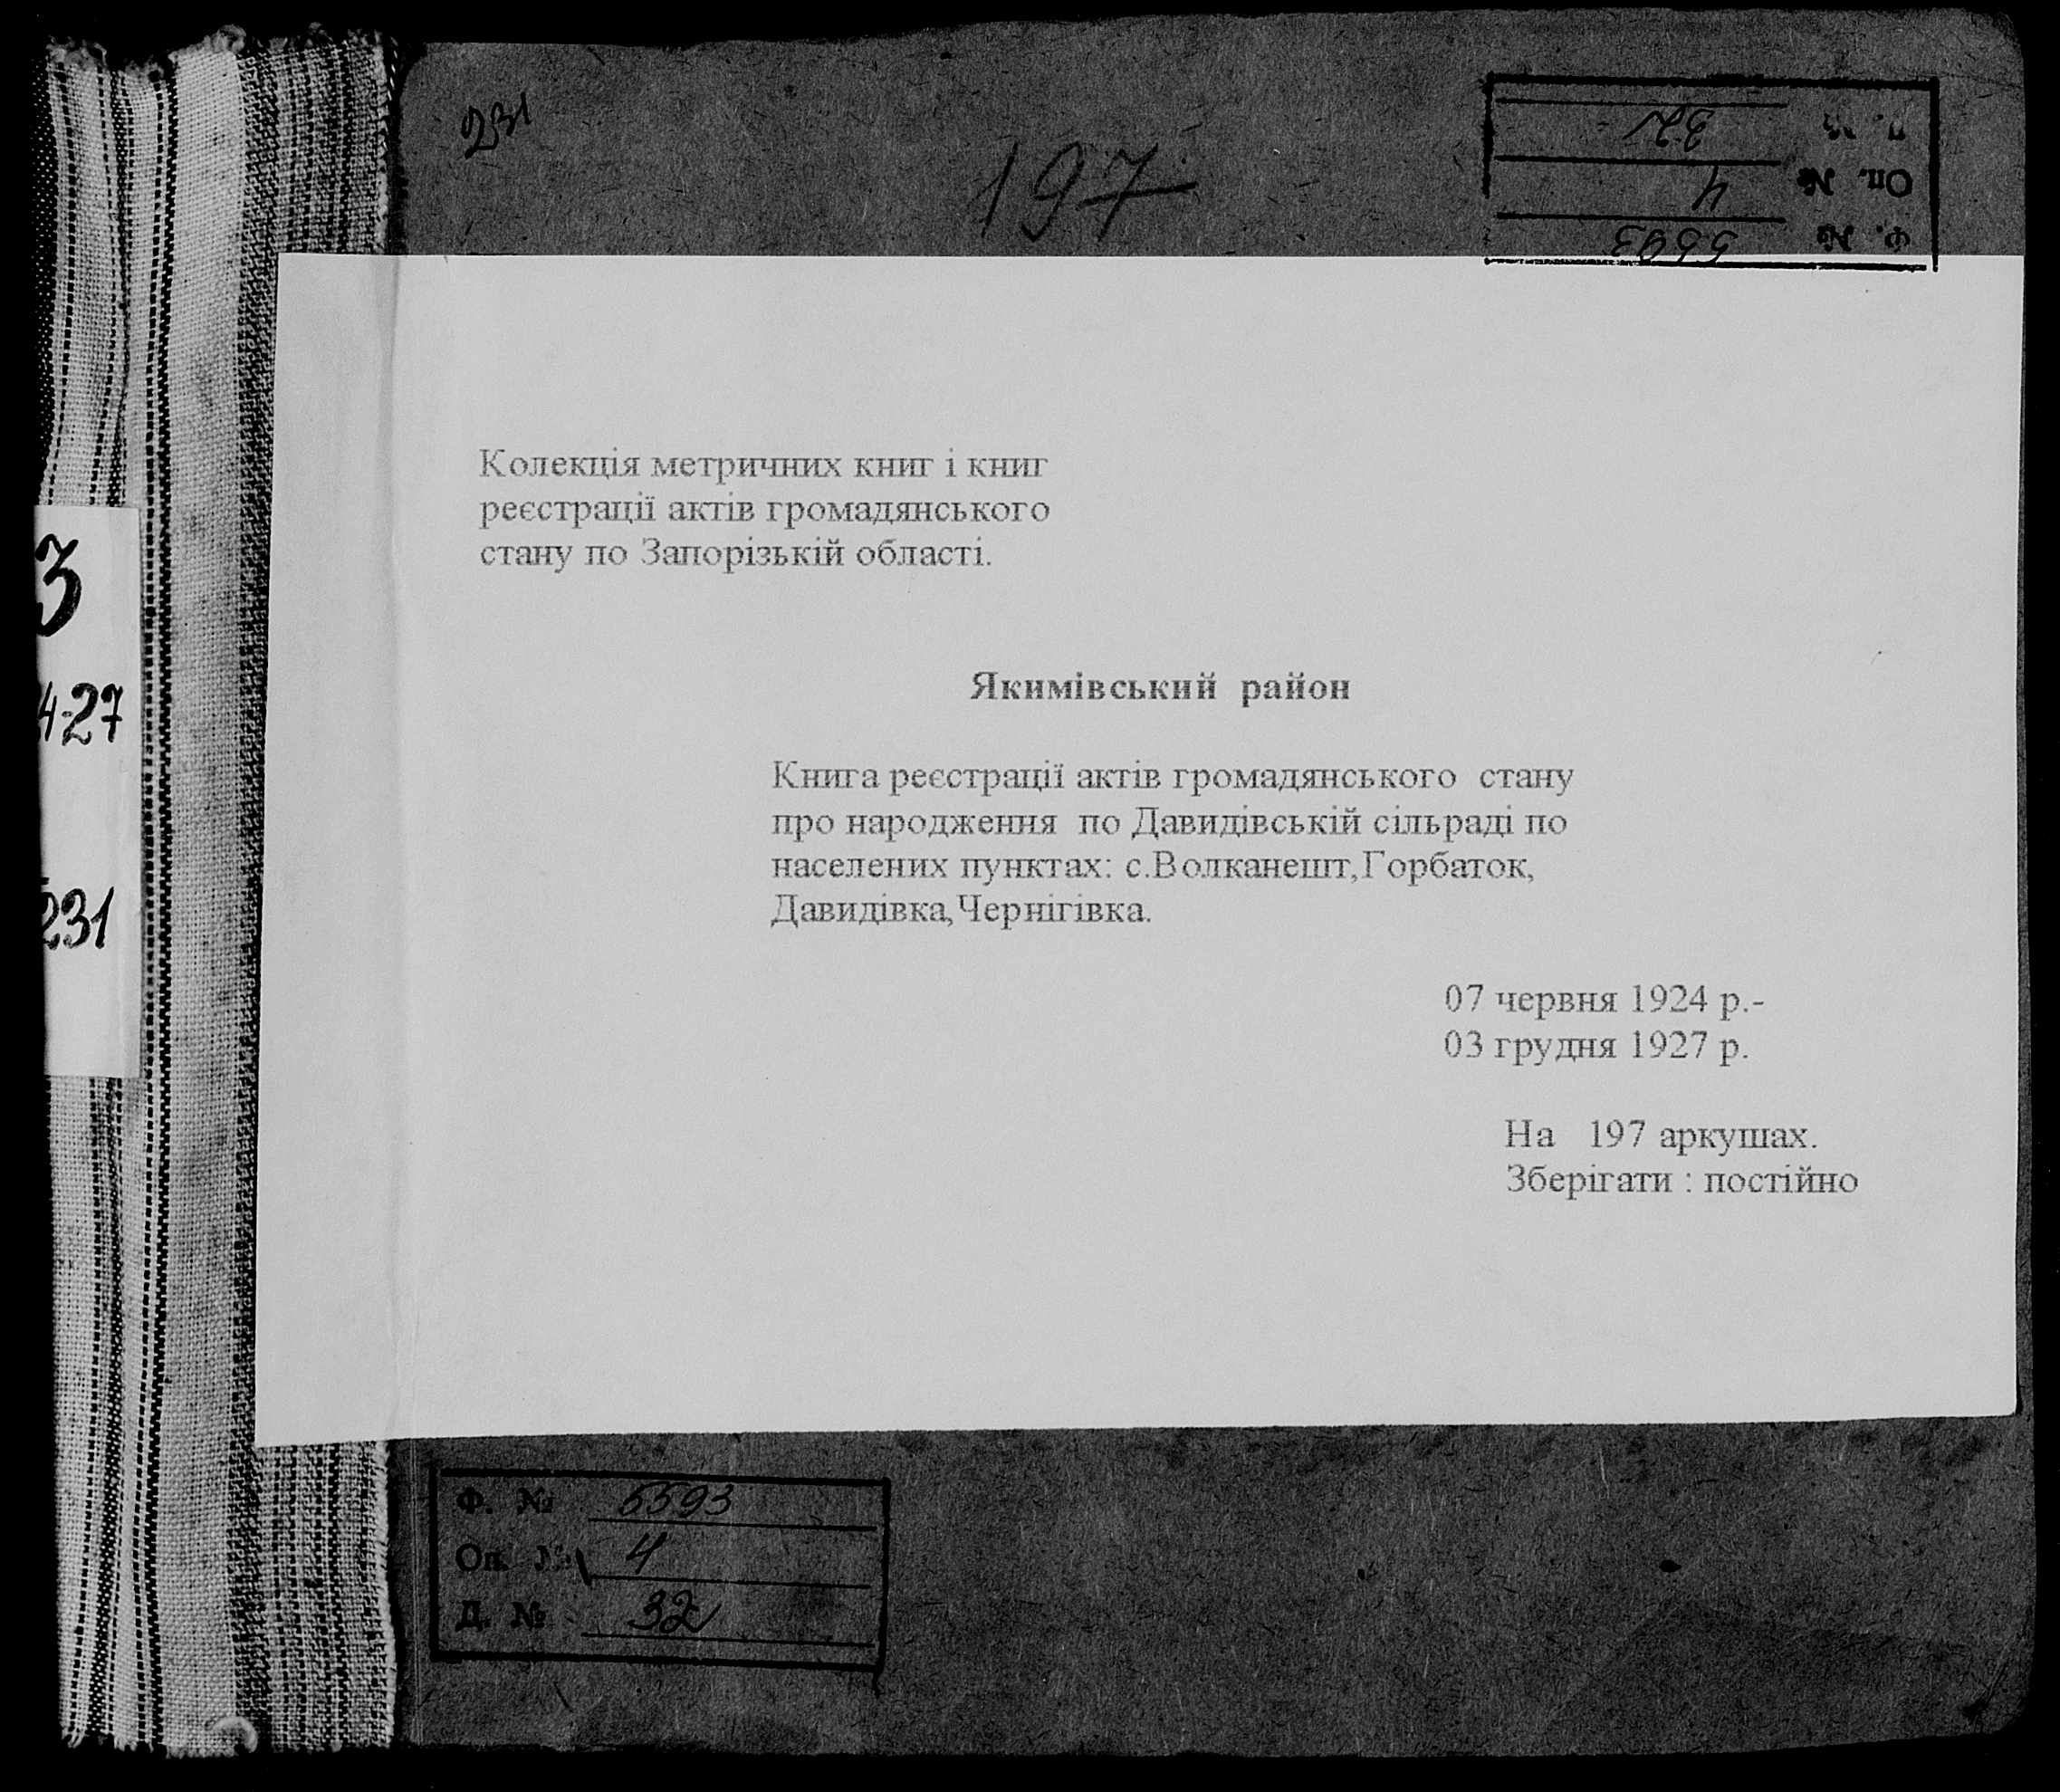 231
197
Ф. № 5593
Оп. № 4
Д. № 32
Колекція метричних книг і книг
реєстрації актів громадянського
стану по Запорізькій області.
Якимівський район
Книга реєстрації актів громадянського стану
про народження по Давидівській сільраді по
населених пунктах: с.Волканешт,Горбаток,
Давидівка,Чернігівка.
07 червня 1924 р.-
03 грудня 1927 р.
На 197 аркушах.
Зберігати : постійно
3
4-27
231
Ф. № 5593
Оп. № 4
Д. № 32